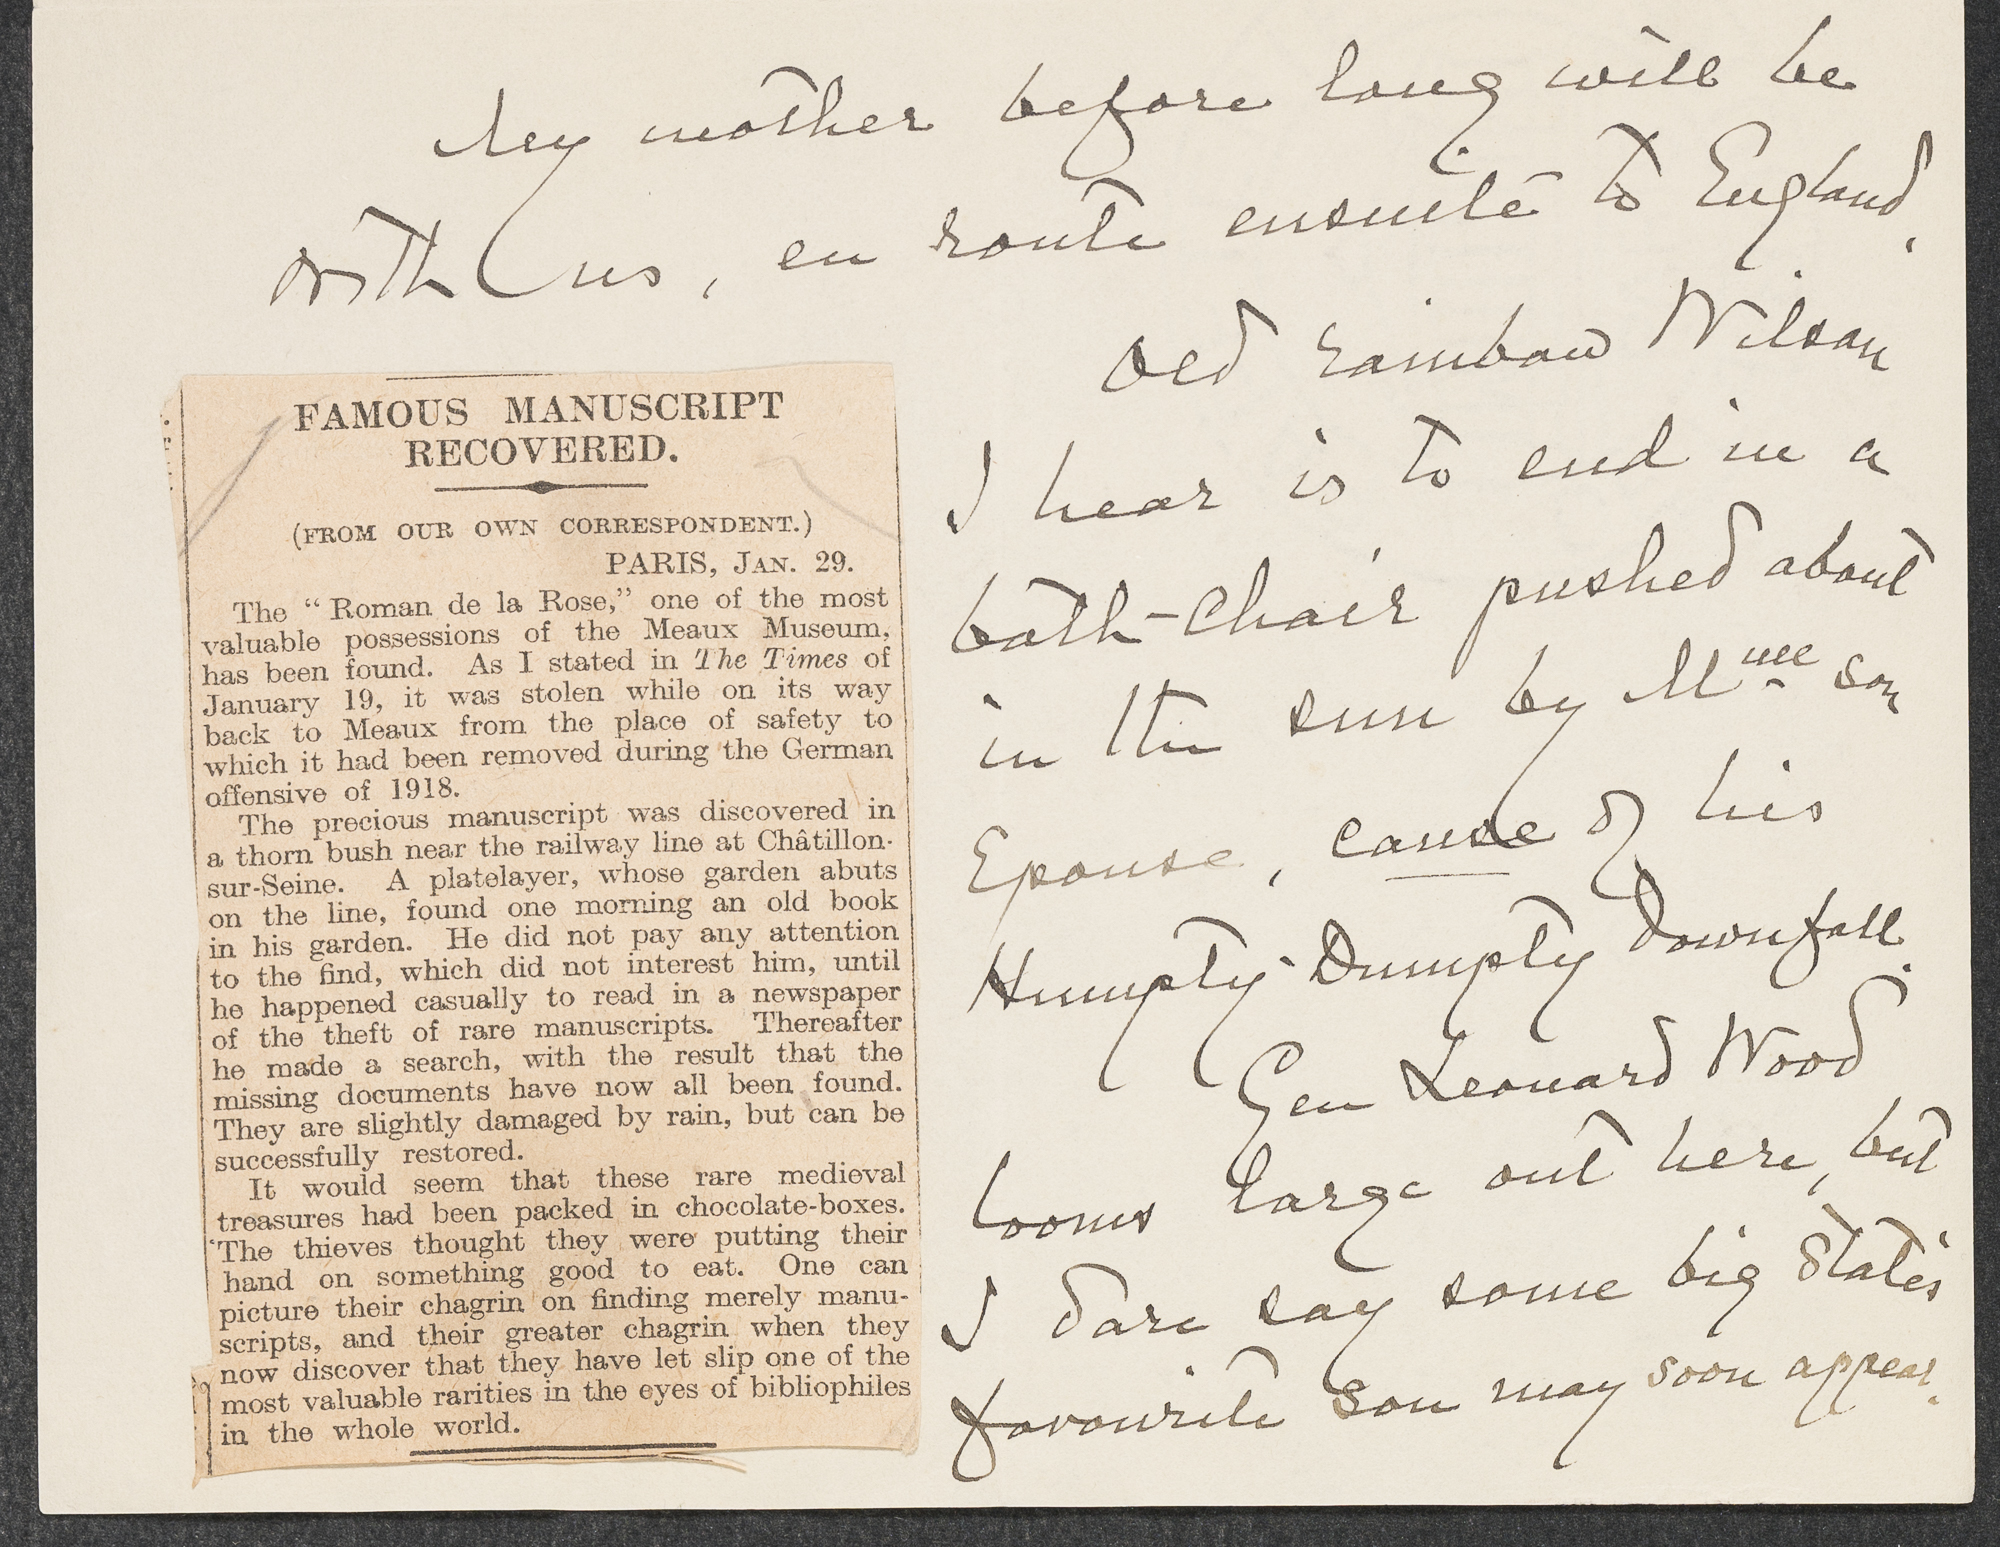 My mother before long will be
with us, en route ensuite to England.
Old rainbow Wilson
I hear is to end in a
bath-chair pushed about
in the sun by Mme son
Epouse, cause of his
Humpty-Dumpty Downfall.
Gen Leonard Wood
looms large out here, but
I dare say some big State's
favourite son may soon appear.
FAMOUS MANUSCRIPT
RECOVERED.
(FROM OUR OWN CORRESPONDENT.)
PARIS, JAN. 29.
The "Roman de la Rose," one of the most
valuable possessions of the Meaux Museum,
has been found. As I stated in The Times of
January 19, it was stolen while on its way
back to Meaux from the place of safety to
which it had been removed during the German
offensive of 1918.
The precious manuscript was discovered in
a thorn bush near the railway line at Châtillon-
sur-Seine. A platelayer, whose garden abuts
on the line, found one morning an old book
in his garden. He did not pay any attention
to the find, which did not interest him, until
he happened casually to read in a newspaper
of the theft of rare manuscripts. Thereafter
he made a search, with the result that the
missing documents have now all been found.
They are slightly damaged by rain, but can be
successfully restored.
It would seem that these rare medieval
treasures had been packed in chocolate-boxes.
The thieves thought they were putting their
hand on something good to eat. One can
picture their chagrin on finding merely manu-
scripts, and their greater chagrin when they
now discover that they have let slip one of the
most valuable rarities in the eyes of bibliophiles
in the whole world.